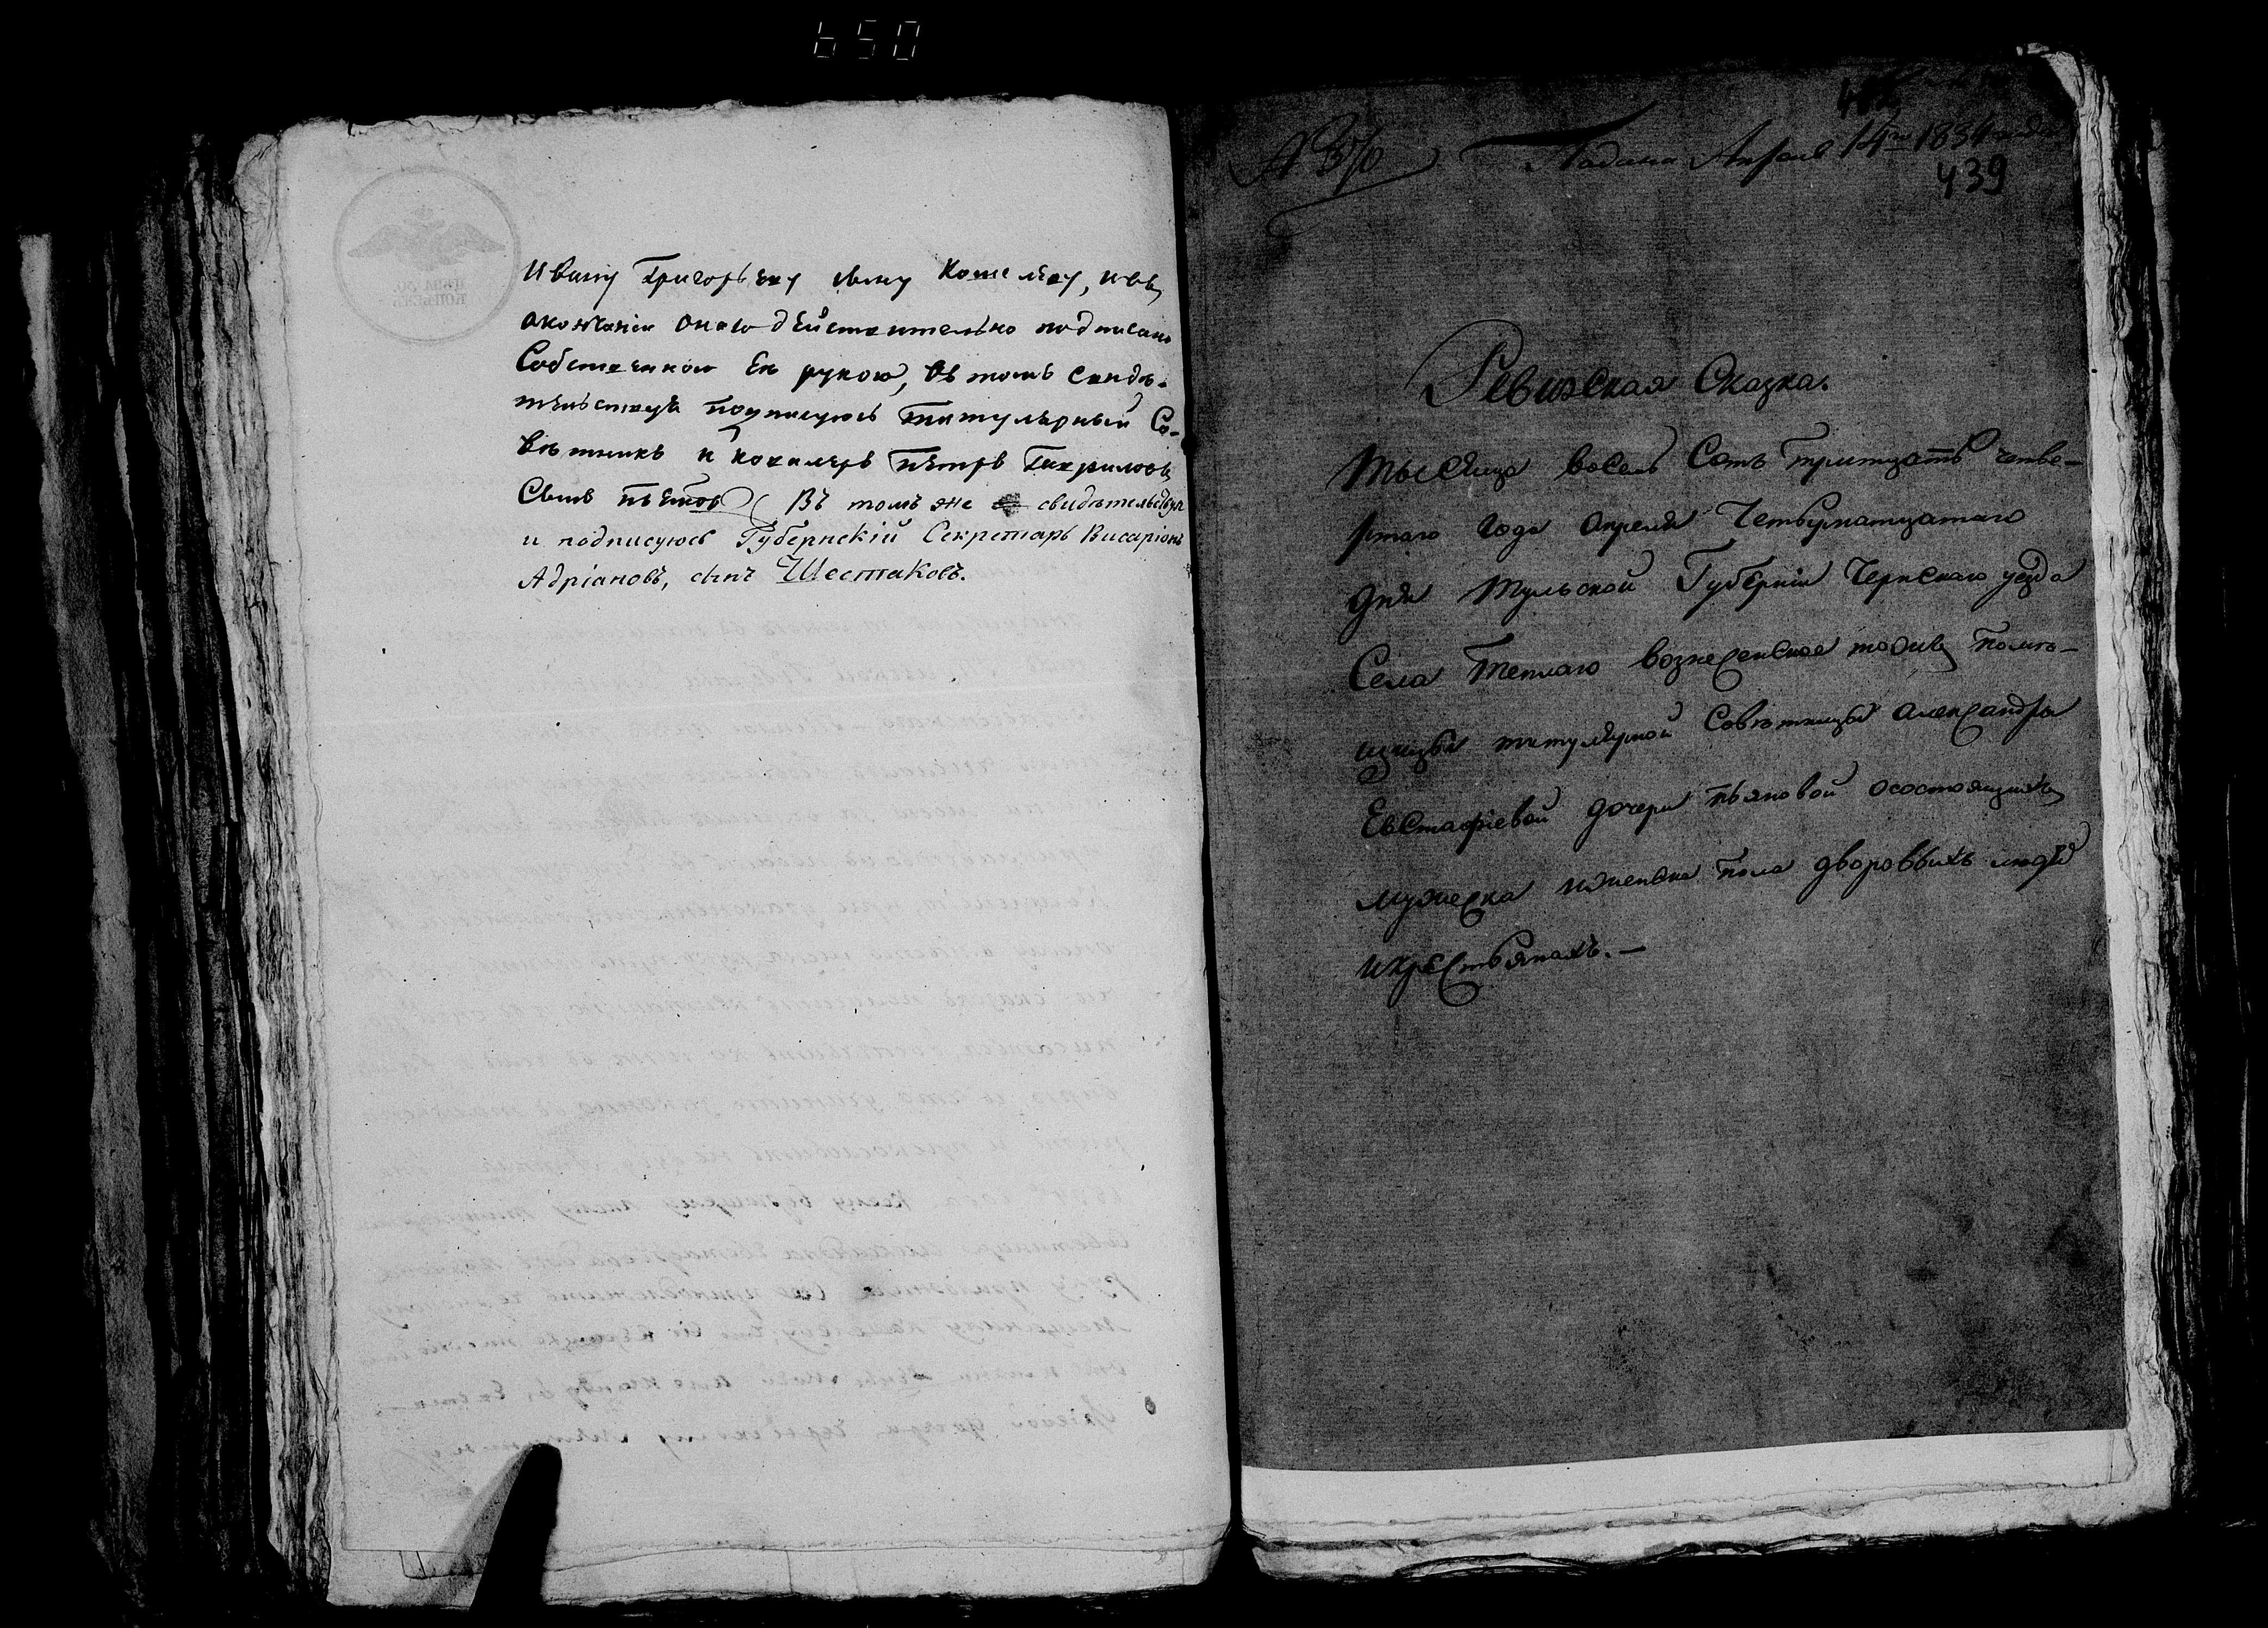 650
Ивану Григорьеву сыну Кошелеву, и въ
окончании оного действительно подписано
Собственною Ея рукою, въ томъ свидѣ-
тельствуя подписуюсь титулярный Со-
вѣтникъ и кавалеръ Петръ Гавриловъ
Сынъ ( Въ томъ же свидѣтельствуя
и подписуюсь Губернскій Секретарь Висаріонъ
Адріановъ, сынъ Шестаковъ.
ЦѢНА 50.
КОПѢЕКЪ
Подана Апреля 14го 1834 года
439
Ревизская Сказка.
Тысяща восемь Сотъ тритцать четве-
ртаго Года апреля Четырнатцатаго
дня Тульской Губерніи Чернскаго уезда
Села Теплаго вознесенское тожъ помѣ-
щицы титулярной Совѣтницы александры
Евстафіевой дочери пьяновой осостоящихъ
мужеска иженска пола дворовыхъ людѣй
икрестьянахъ.—